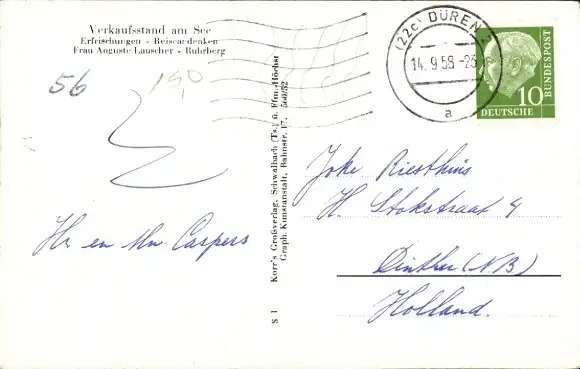 Verkaufsstand am See
Erfrischungen - Reiseandenken
Frau Auguste Lauscher - Ruhrberg
56
190
Hr en Mw. Caspers
Korr's Großverlag, Schwalbach (Ts.) ü. Ffm.-Höchst
Graph. Kunstanstalt, Bahnstr. 17. 560/52
S 1
(22c) DÜREN
14.9.58
a
DEUTSCHE
BUNDESPOST
10
Joke Riesthuis
H. Stokstraat 4
Dinther (N.B)
Holland.